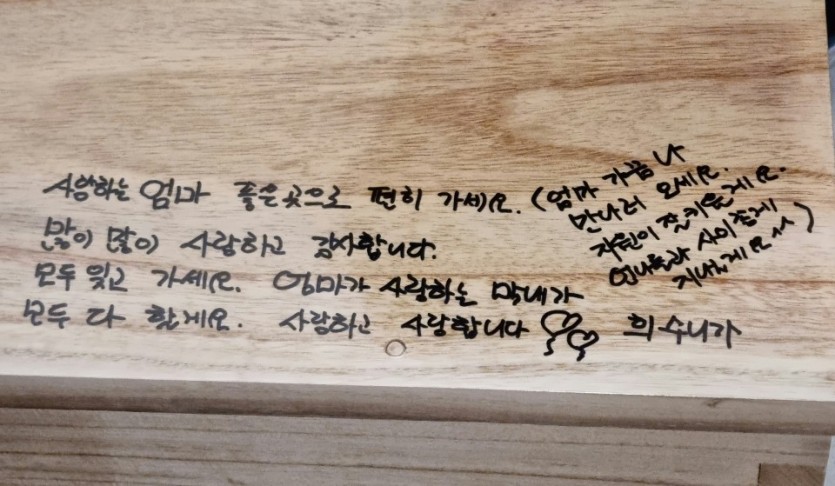 사랑하는 엄마 좋은 곳으로 편히 가세요.
많이 많이 사랑하고 감사합니다.
모두 잊고 가세요. 엄마가 사랑하는 막내가
모두 다 할게요. 사랑하고 사랑합니다 희수니가
(엄마 가끔 나
만나러 오세요.
자원이 잘 키울게요.
언니들과 사이좋게
지낼게요^^)